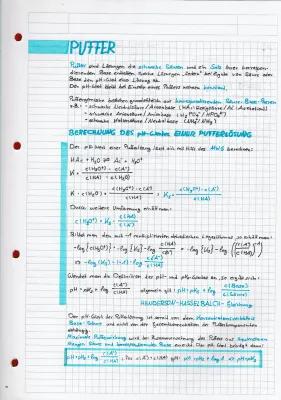 PUFFER
Puffer sind Lösungen die schwache Säuren und ein Salz ihrer korrespon-
dierenden Base enthalten. Solche Lösungen "   " bei Zugabe von Säure oder
Base den pH-Wert einer Lösung ab.
Der pH-Wert bleibt bei Zusatz eines Puffers nahezu konstant.
Puffersysteme bestehen grundsätzlich aus korrespondierenden Säure-Base-Paaren
z.B.: - schwache Neutralsäure/Anionbase (HAc: Essigsäure/Ac⁻: Acetation)
- schwache Anionsäure/Anionbase (H₂PO₄⁻/HPO₄²⁻)
- schwache Kationsäure/Neutralbase (NH₄⁺/NH₃)
BERECHNUNG DES pH-Wertes EINER PUFFERLÖSUNG
Der pH-Wert einer Pufferlösung lässt sich mit Hilfe des MWG berechnen:
HAc + H₂O ⇌ Ac⁻ + H₃O⁺
K = c(H₃O⁺) · c(A⁻) / c(HA) · c(H₂O)
K · c(H₂O) = c(H₃O⁺) · c(A⁻) / c(HA) = Ks = c(H₃O⁺) · c(A⁻) / c(HA)
Durch weitere Umformung erhält man:
c(H₃O⁺) = Ks · c(HA) / c(A⁻)
Bildet man den mit -1 multiplizierten dekadischen Logarithmus, so erhält man:
-log {c(H₃O⁺)} = -log {Ks} - log c(HA) / c(A⁻) = -log {Ks} - log (c(A⁻) / c(HA))⁻¹
⇒ -log {Ks} + log c(A⁻) / c(HA)
Wendet man die Definitionen der pH- und pKs-Werte an, so ergibt sich:
pH = pKs + log c(A⁻) / c(HA) allgemein gilt: pH = pKs + log c(Base) / c(Säure)
HENDERSON-HASSELBALCH-Gleichung
Der pH-Wert der Pufferlösung ist somit von dem Konzentrationsverhältnis
Base-Säure und nicht von der Gesamtkonzentration der Pufferkomponenten
abhängig.
Maximale Pufferwirkung wird bei Zusammensetzung des Puffers aus äquivalenten
Mengen Säure und korrespondierender Base erreicht. Der pH-Wert beträgt dann:
pH = pKs + log c(A⁻) / c(HA), Da c(A⁻) = c(HA) gilt: pH = pKs + log 1 ⇒ pH = pKs